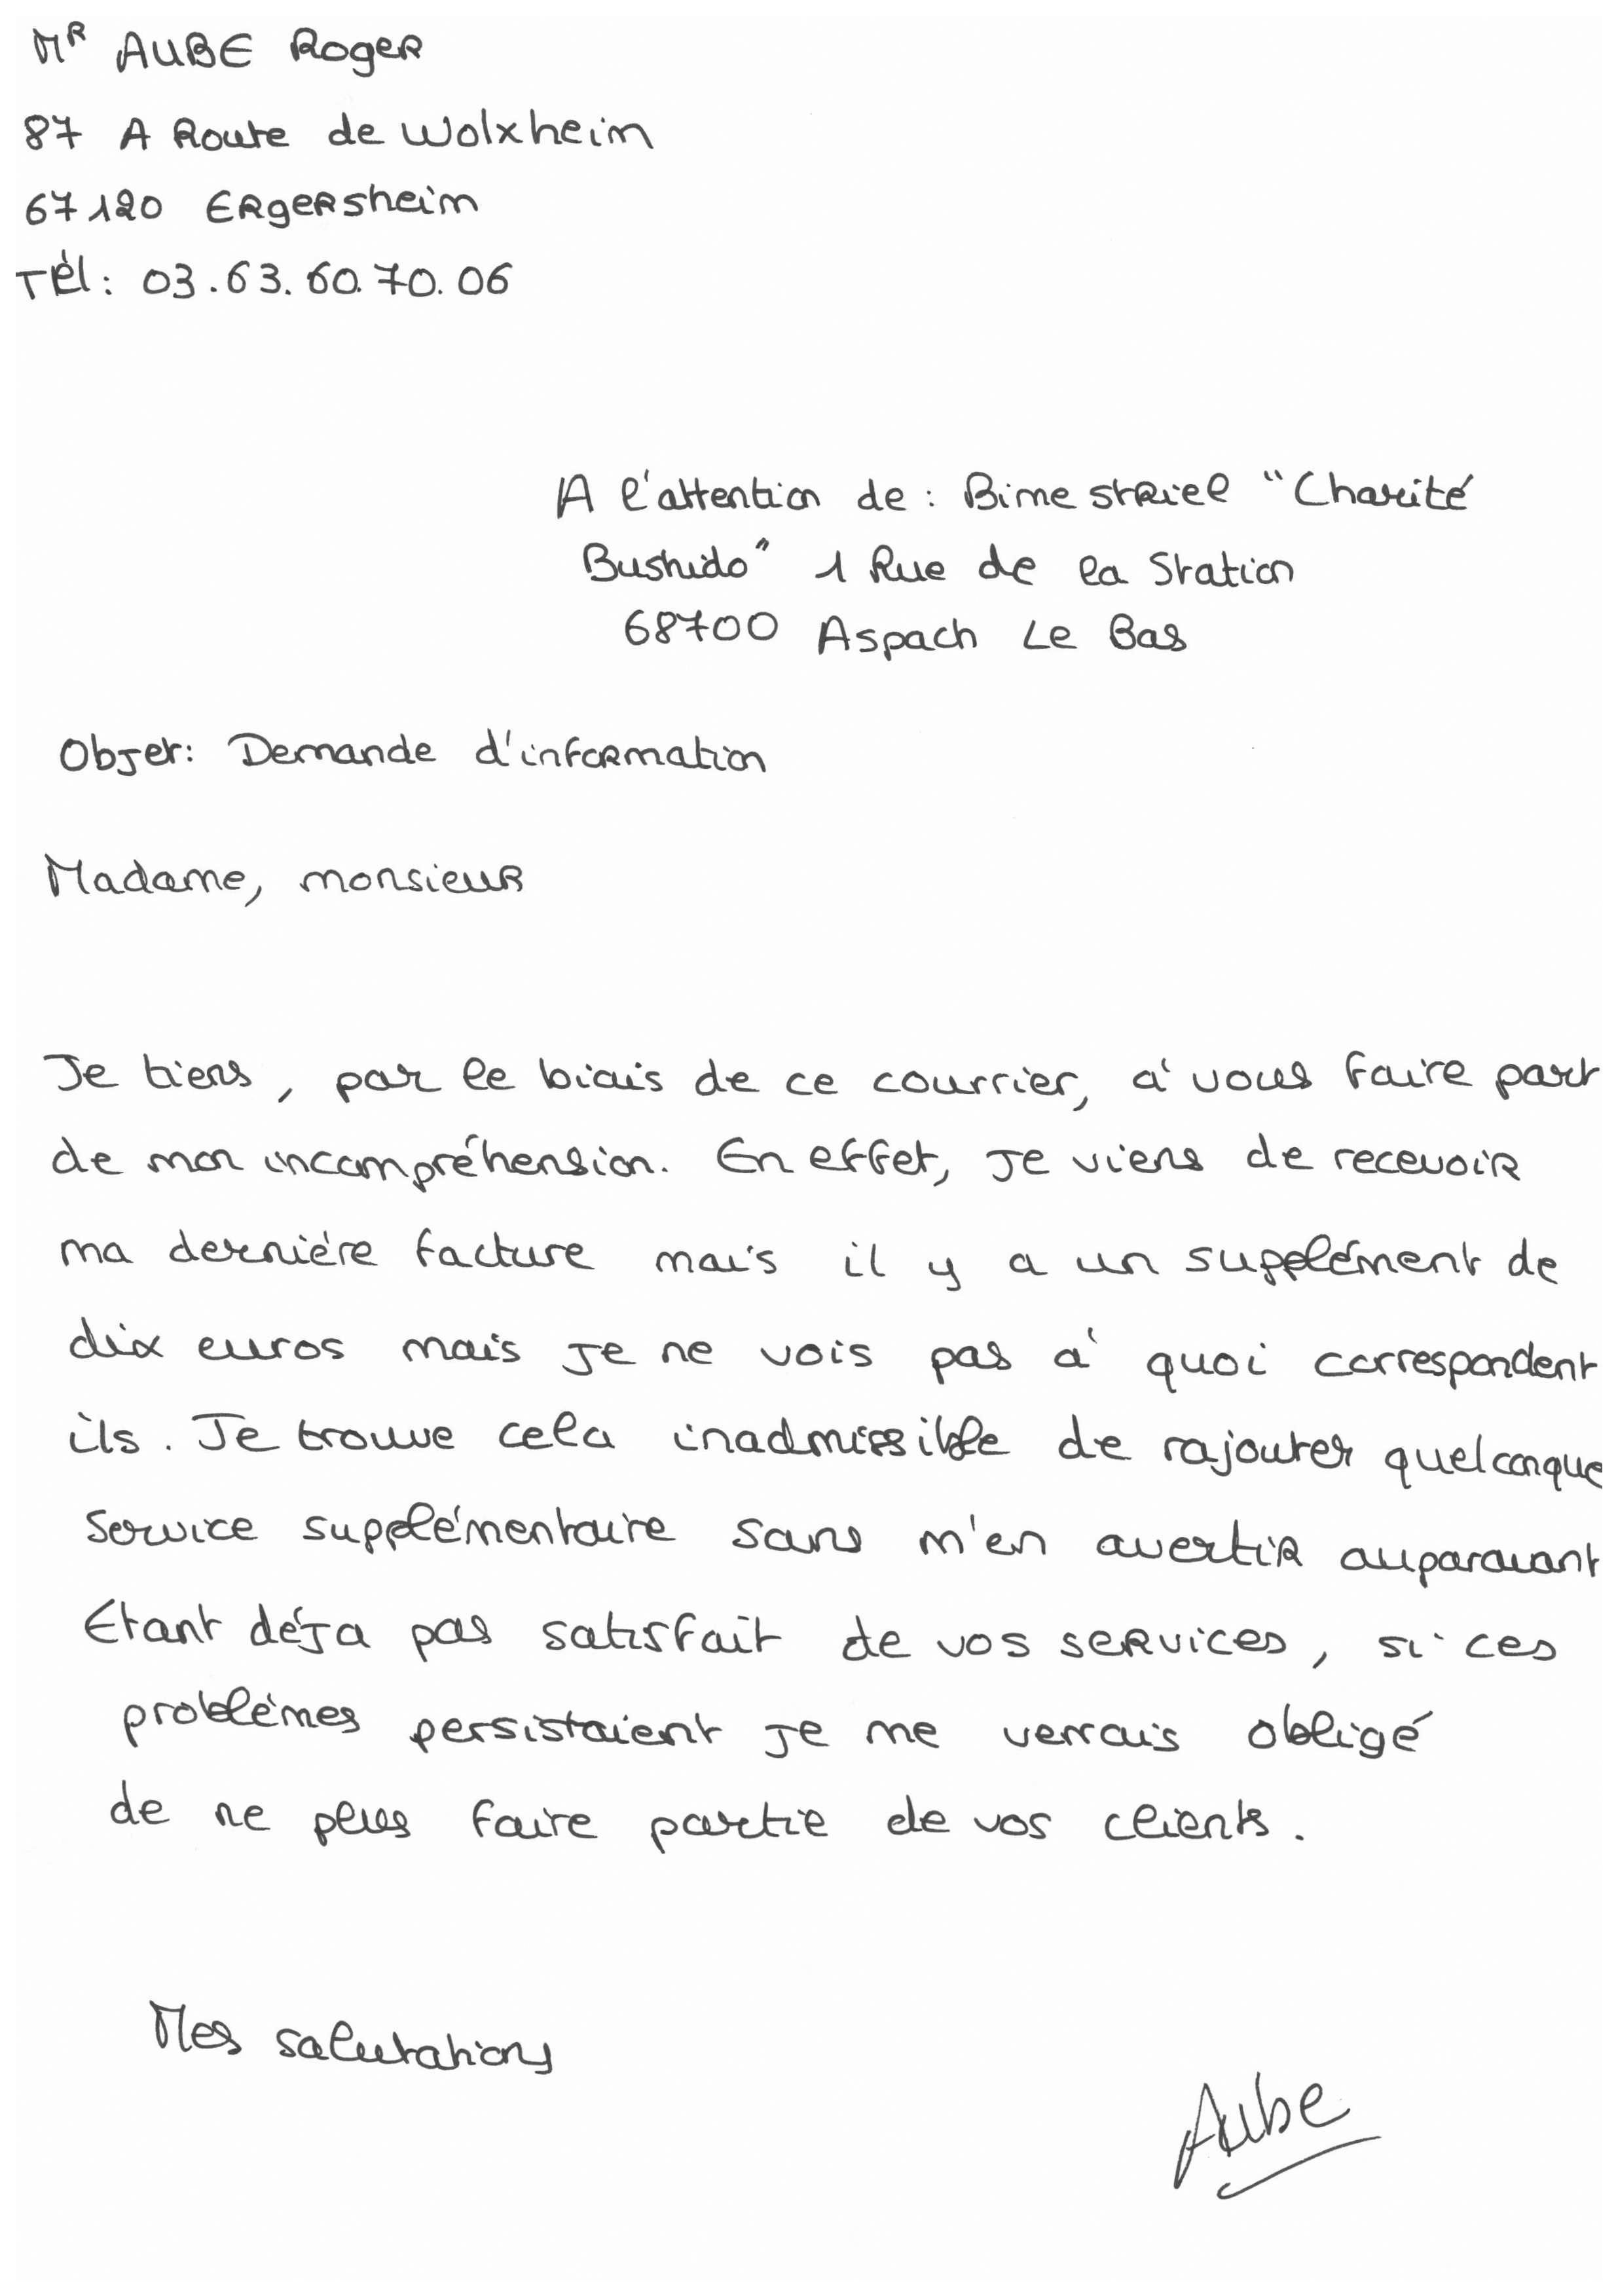 Mr AUBE Roger
87 A Route de Wolxheim
67120 Ergersheim
Tèl: 03.63.60.70.06
A l'attention de: Bimestriel "Charité
Bushido" 1 Rue de la Station
68700 Aspach Le Bas
Objet: Demande d'information
Madame, monsieur
Je tiens, par le biais de ce courrier, à vous faire part
de mon incompréhension. En effet, je viens de recevoir
ma dernière facture mais il y a un supplément de
dix euros mais je ne vois pas à quoi correspondent
ils. Je trouve cela inadmissible de rajouter quelconque
service supplémentaire sans m'en avertir auparavant
Etant déja pas satisfait de vos services, si ces
problèmes persistaient je me verrais obligé
de ne plus faire partie de vos clients.
Mes salutations
Aube